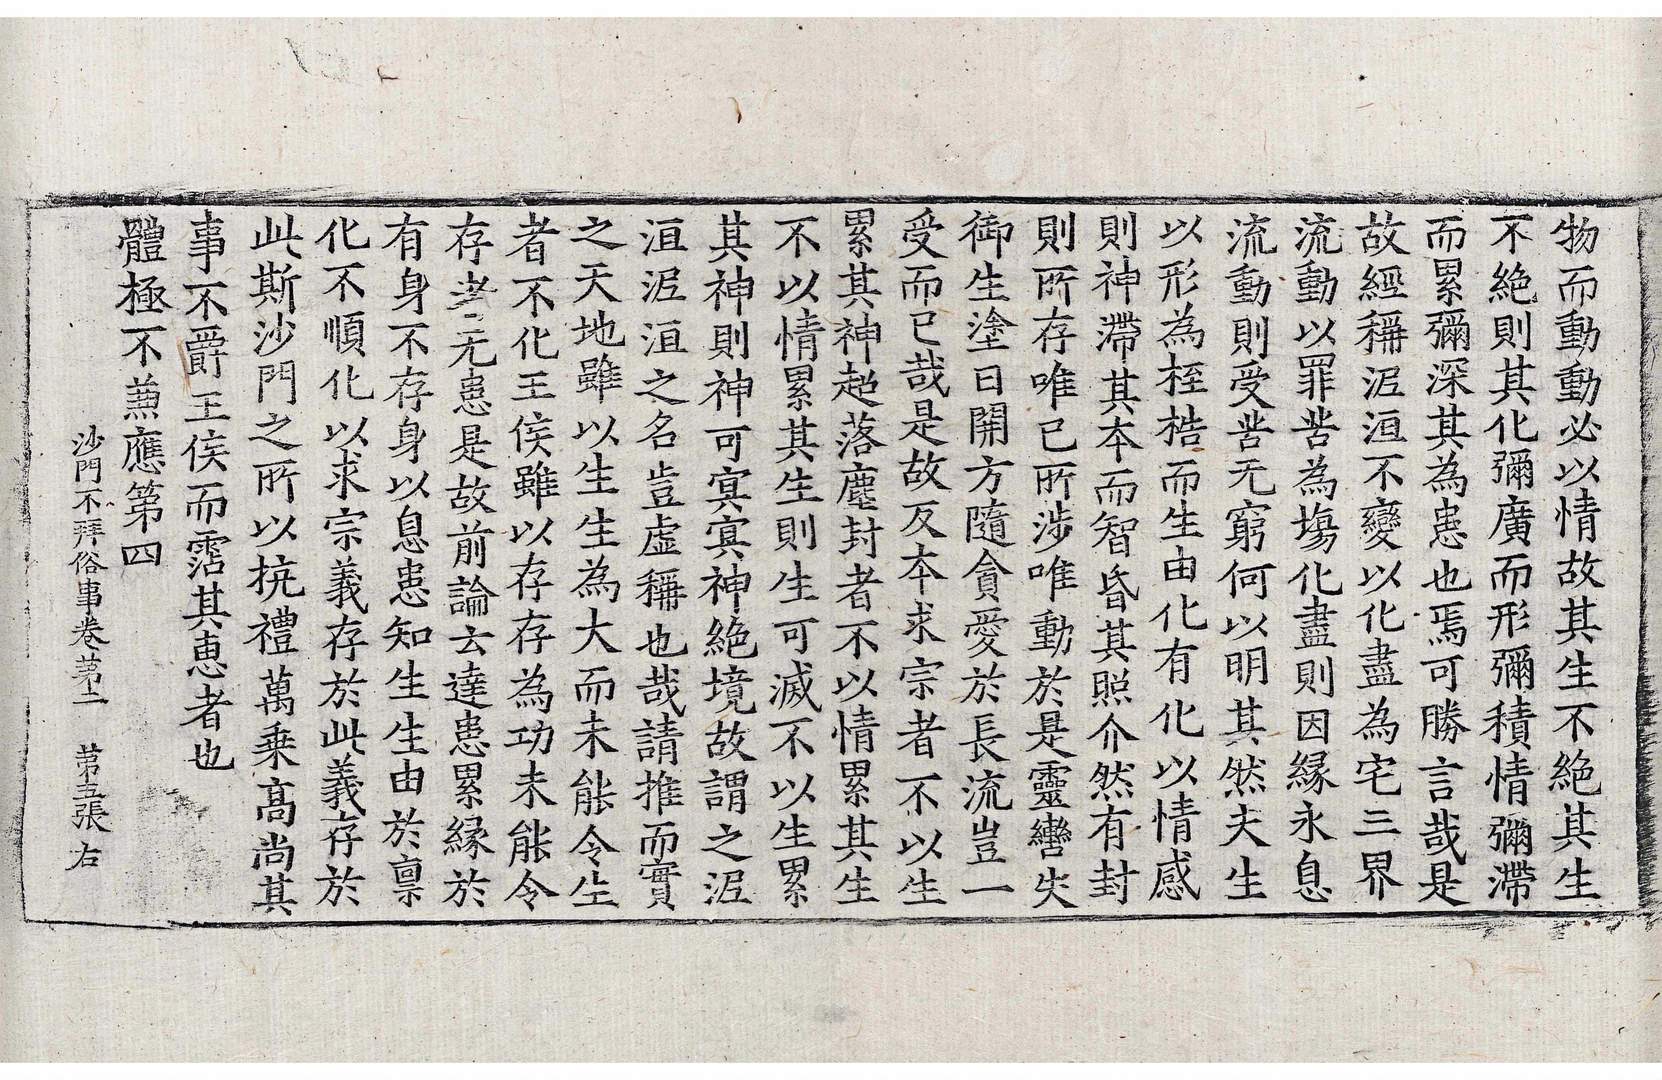 物而動動必以情故其生不絶其生
不絶則其化彌廣而形彌積情彌滯
而累彌深其為患也焉可勝言哉是
故經稱泥洹不變以化盡為宅三界
流動以罪苦為塲化盡則因緣永息
流動則受苦无窮何以明其然夫生
以形為桎梏而生由化有化以情感
則神滯其本而智昏其照介然有封
則所存唯已所涉唯動於是靈轡失
御生塗日開方隨貪愛於長流豈一
受而已哉是故反本求宗者不以生
累其神超落塵封者不以情累其生
不以情累其生則生可滅不以生累
其神則神可冥冥神絶境故謂之泥
洹泥洹之名豈虛稱也哉請推而實
之天地雖以生生為大而未能令生
者不化王侯雖以存存為功未能令
存者无患是故前論云達患累緣於
有身不存身以息患知生生由於稟
化不順化以求宗義存於此義存於
此斯沙門之所以抗禮萬乗髙尚其
事不爵王侯而霑其惠者也
體極不蕪應第四
沙門不拜俗事卷第二　第五張　右